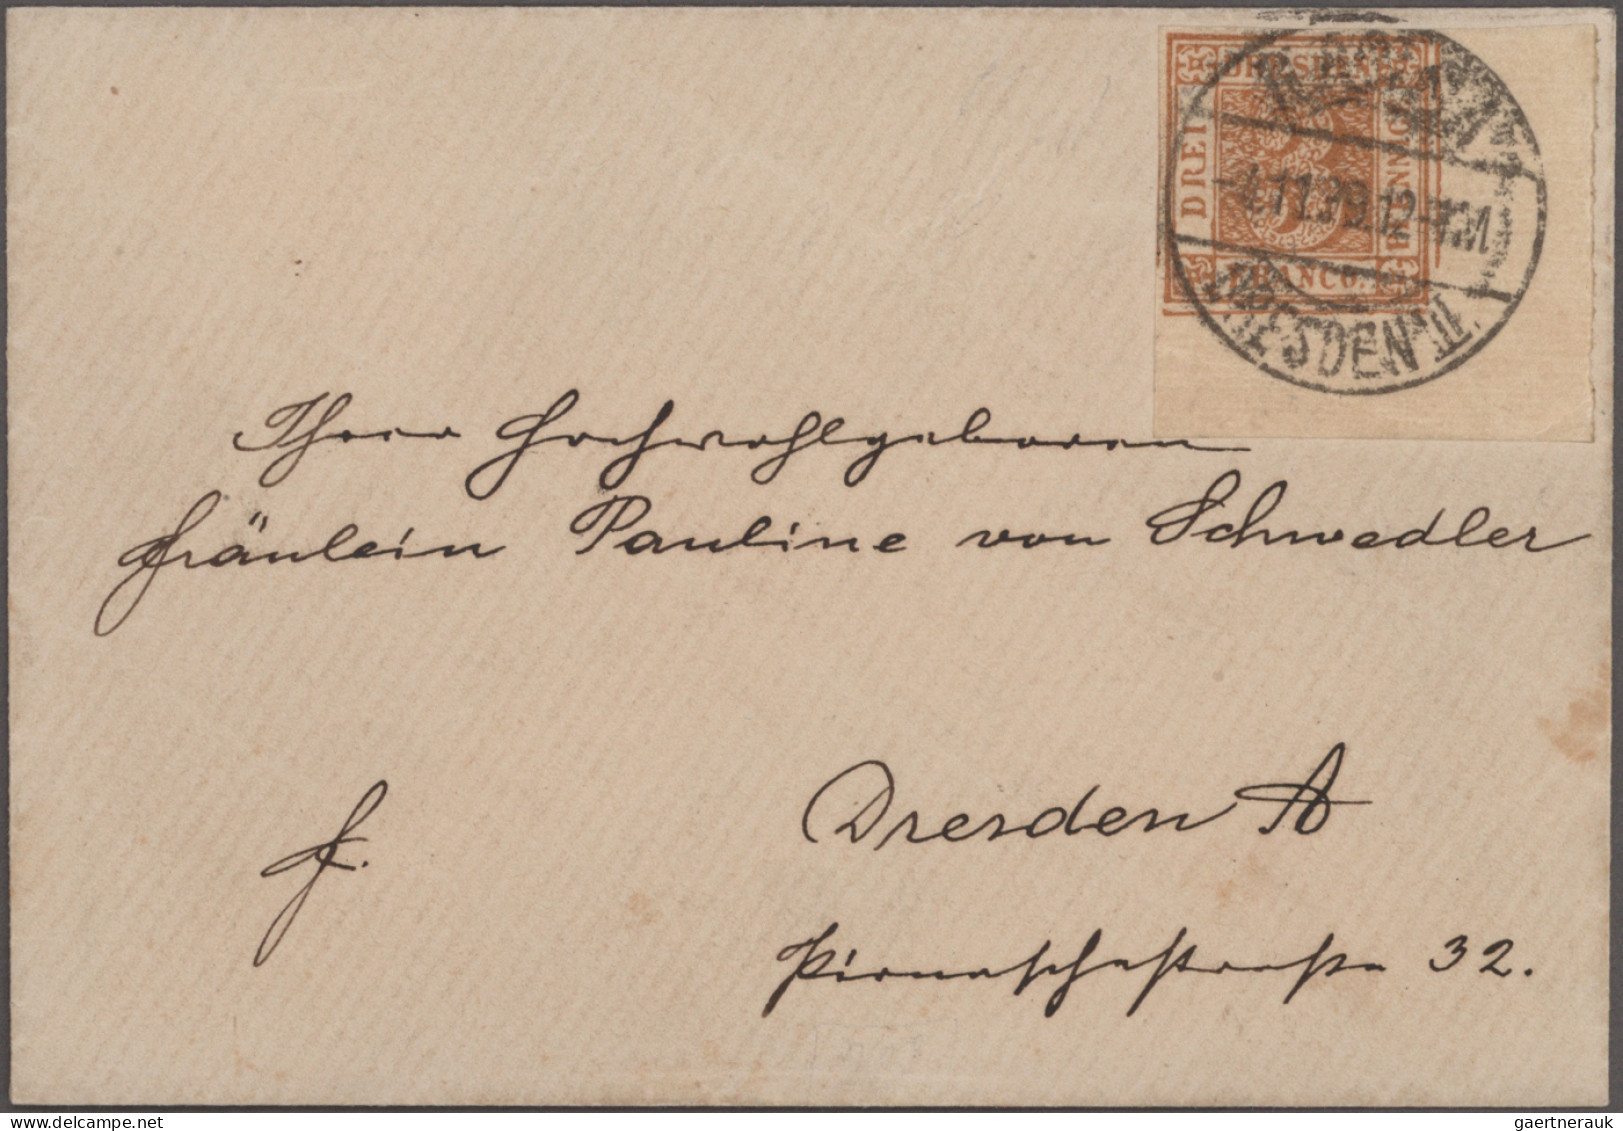 DRESDEN
DREI
PFENNIG
FRANCO.
-4.11.39.12-
DRESDEN
Ihrer Hochwohlgeboren
Fräulein Pauline von Schwedler
Dresden A
f.
Pirnaschestrasse 32.
gaertnerauk